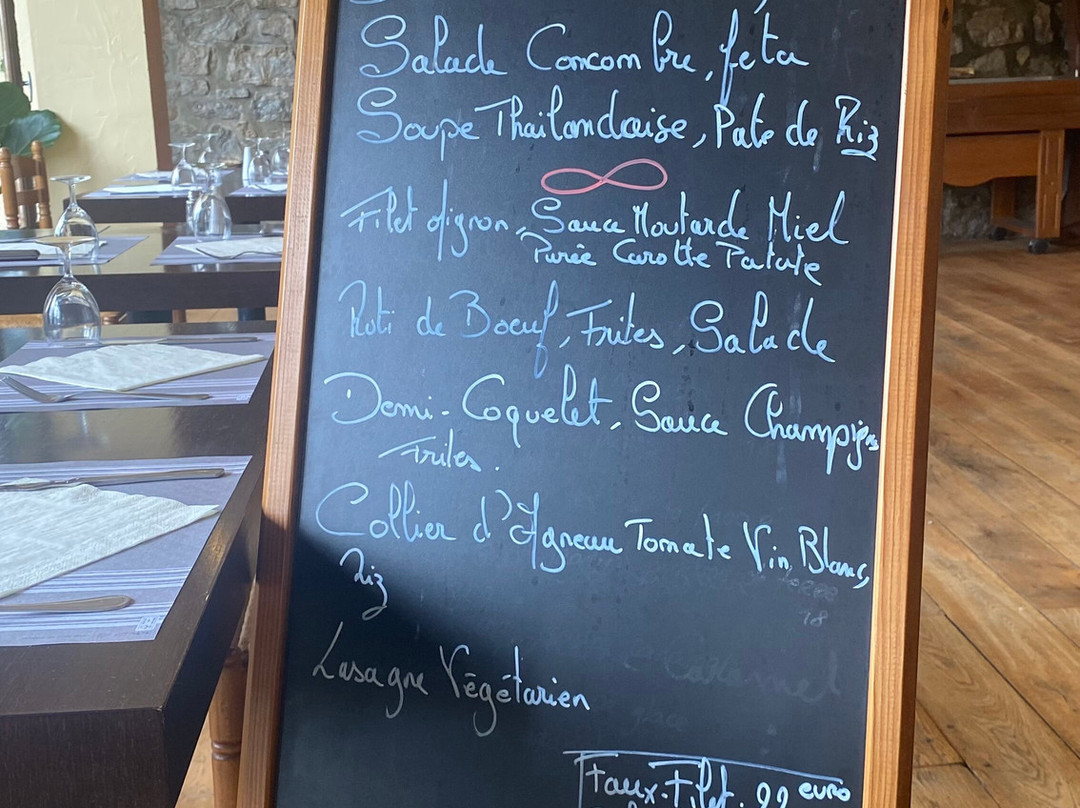 Salade Concombre, feta
Soupe Thaïlandaise, Pate de Riz
Filet Mignon, Sauce Moutarde Miel
Purée Carotte Patate
Roti de Boeuf, Frites, Salade
Demi-Coquelet, Sauce Champigns
Frites.
Collier d'Agneau Tomate Vin Blanc,
Riz
Lasagne Végétarien
Faux-Filet. 22 euro